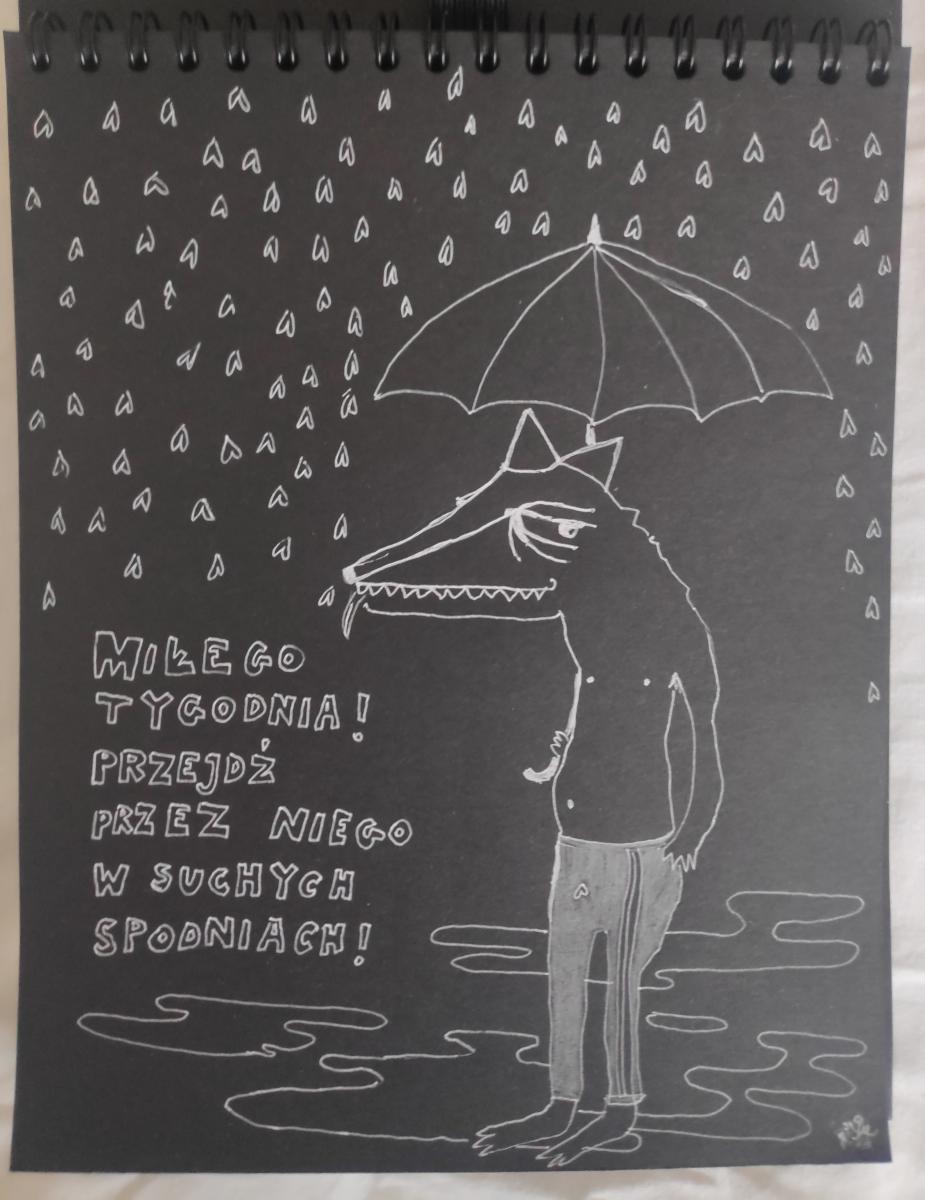 MIŁEGO
TYGODNIA!
PRZEJDŹ
PRZEZ NIEGO
W SUCHYCH
SPODNIACH!